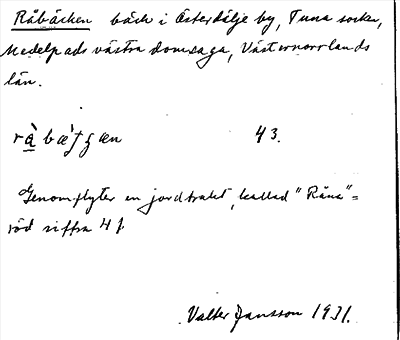 Råbäcken bäck i Österdälje by, Tuna socken,
Medelpads västra domsaga, Västernorrlands
län.
43.
Genomflyter en jordtrakt, kallad "Råna" =
röd siffra 41.
Valter Jansson 1931.